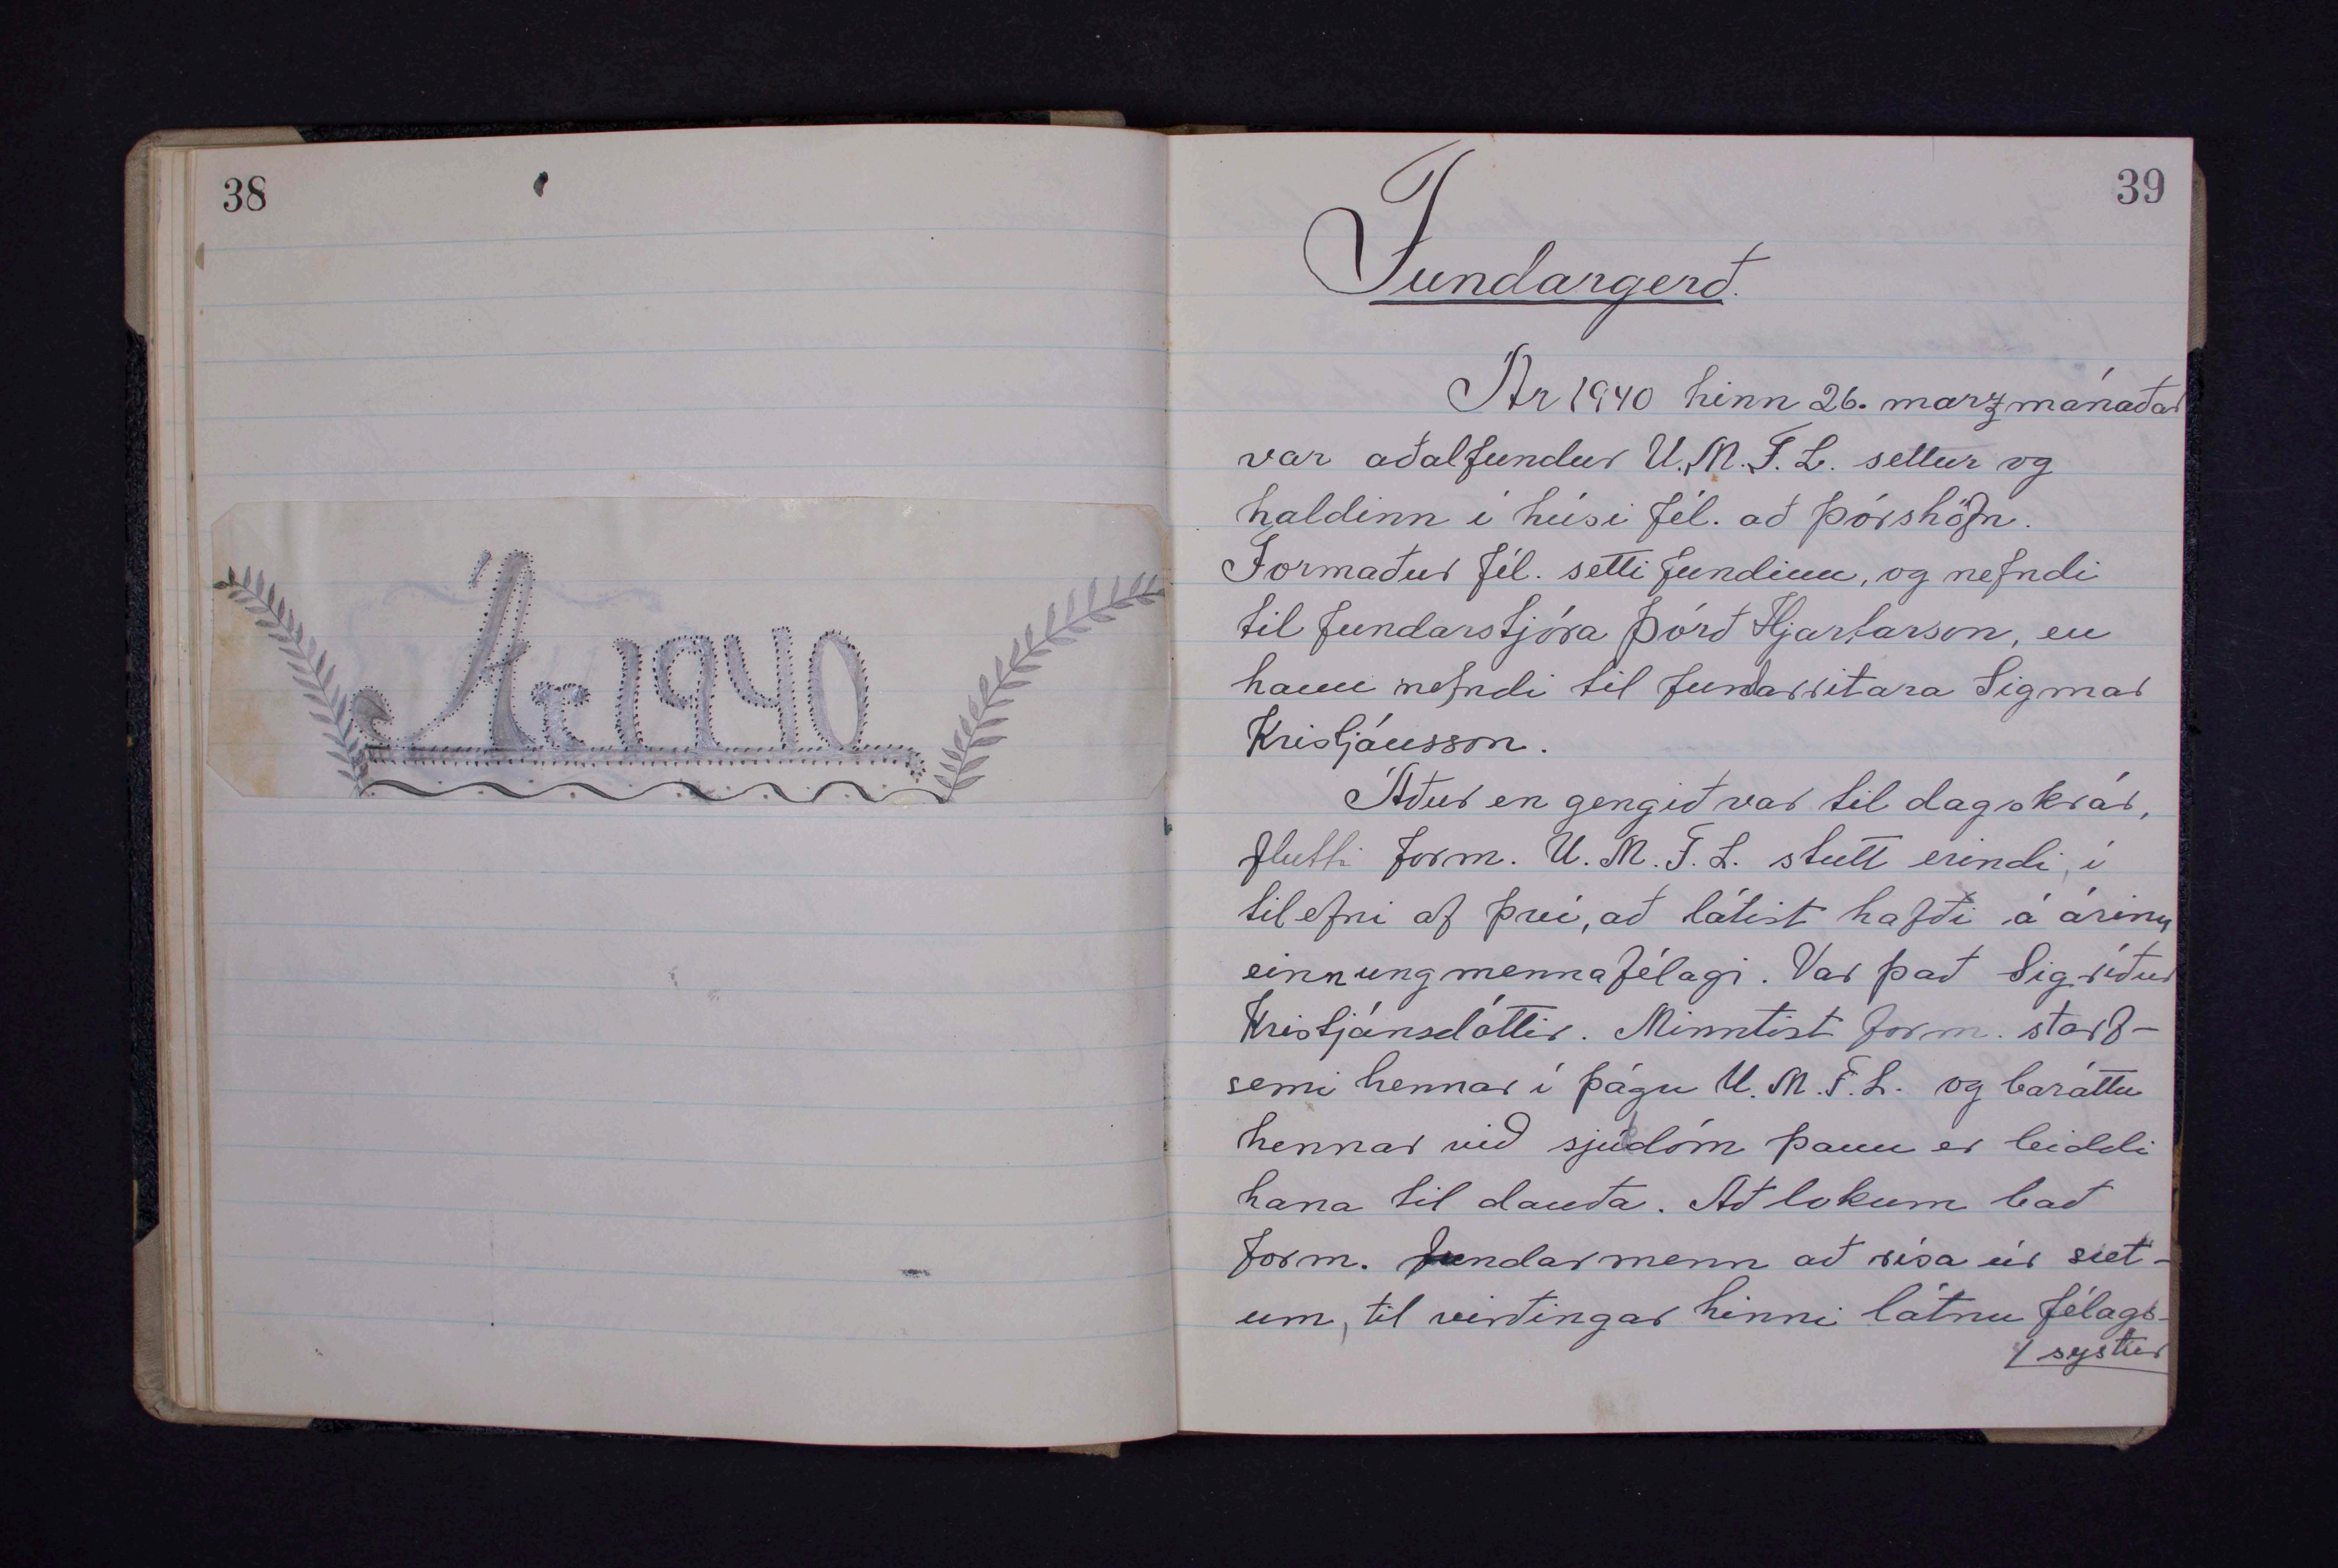 38
Ár 1940
39
Fundargerð.
Ár 1940 hinn 26. marzmánaðar
var aðalfundur U.M.F.L. settur og
haldinn í húsi fél. að Þórshöfn.
Formaður fél. setti fundinn, og nefndi
til fundarstjóra Þórð Hjartarson, en
hann nefndi til fundarritara Sigmar
Kristjánsson.
Áður en gengið var til dagskrár,
flutti form. U.M.F.L. stutt erindi, í
tilefni af því, að látist hafði á árinu
einn ungmennafélagi. Var það Sigríður
Kristjánsdóttir. Minntist form. starf-
semi hennar í þágu U.M.F.L. og baráttu
hennar við sjúkdóm þann er leiddi
hana til dauða. Að lokum bað
form. fundarmenn að rísa úr sæt-
um, til virðingar hinni látnu félags-
/systur